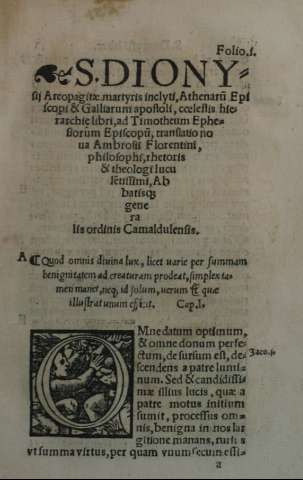 Folio.1.
S. DIONY-
sij Areopagitæ martyris inclyti, Athenarũ Epi
scopi & Galliarum apostoli, cœlestis hie-
rarchię libri, ad Timotheum Ephe-
siorum Episcopũ, translatio no
ua Ambrosii Florentini,
philosophi, rhetoris
& theologi lucu
lẽtissimi, Ab
batisq;
gene
ra
lis ordinis Camaldulensis.
A ¶ Quod omnis diuina lux, licet uarie per summam
benignitatem ad creaturam prodeat, simplex ta-
men manet, neq; id solum, uerum
illustratum Cap.1.
OMne datum optimum,
& omne donum perfe-
ctum, de sursum est, de-
scendens a patre lumi-
num. Sed & candidissi-
mæ illius lucis, quæ a
patre motus initium
sumit, processus om-
nis, benigna in nos lar
gitione manans, rursus
vt summa virtus, per quam vnum
Jaco.1.
a